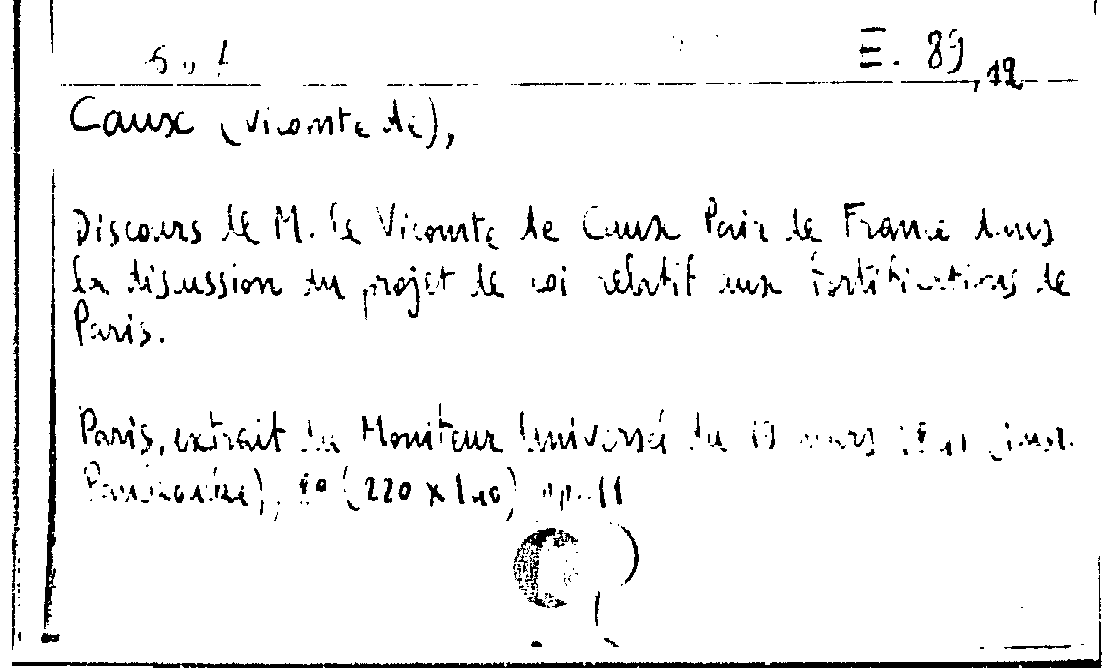 E. 89,12
Caux (Vicomte de),
Discours de M. le Vicomte de Caux Pair de France dans
la discussion du projet de loi relatif aux fortifications de
Paris.
Paris, extrait du Moniteur Universel du mars
8° (220 x 140) pp. 11